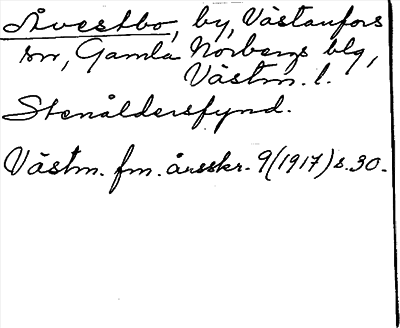 Åvestbo, by, Västanfors
sn, Gamla Norbergs blg,
Västm. l.
Stenåldersfynd.
Västm. fm. årsskr. 9(1917) s. 30.